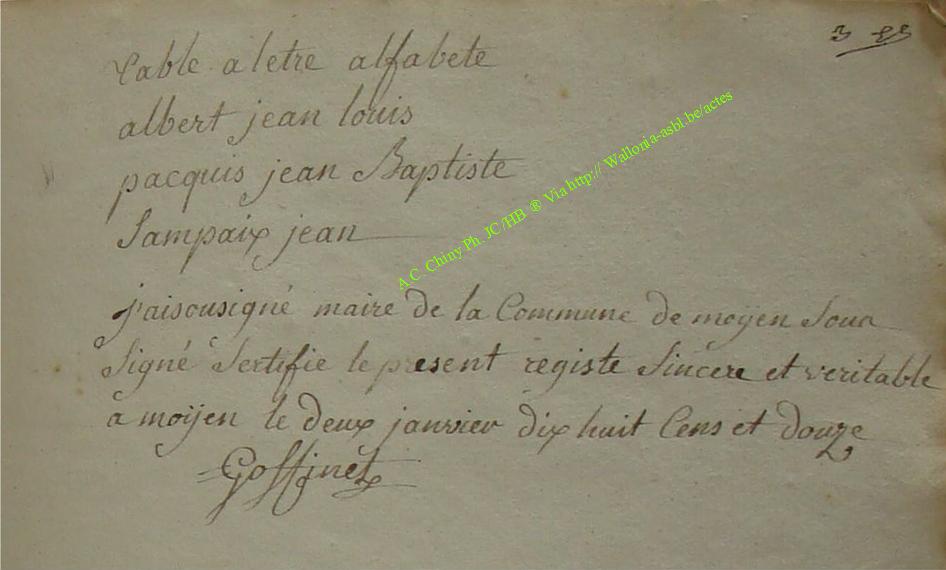 3
table a letre alfabete
albert jean louis
pacquis jean Baptiste
Sampaix jean
A.C. Chiny Ph. JC /HB ® Via http:// Wallonia-asbl.be/actes
j'aisousigné maire de la Commune de moÿen Sous
Signé Sertifie le present registe Sincere et veritable
a moÿen le deux janvier dix huit Cens et douze
Goffinet